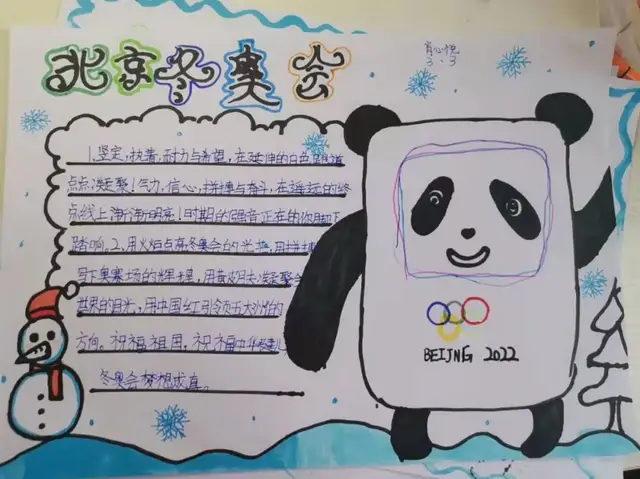 北京冬奥会
肖心悦
3.3
1.坚定,执着,耐力与希望,在延伸的白色跑道
点点凝聚!气力,信心,拼搏与奋斗,在遥远的终
点线上渐渐明亮!时期的强音正在你脚下
踏响。2、用火炬点亮冬奥会的光热,用拼搏
写下奥赛场的辉煌,用黄皮肤凝聚全
世界的目光,用中国红引领五大洲的
方向。祝福祖国,祝福中华健儿
冬奥会梦想成真。
BEIJNG 2022